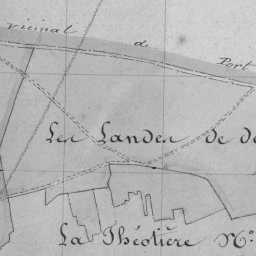 vicinal de Port
Les Landes de de
La Théotière Nº